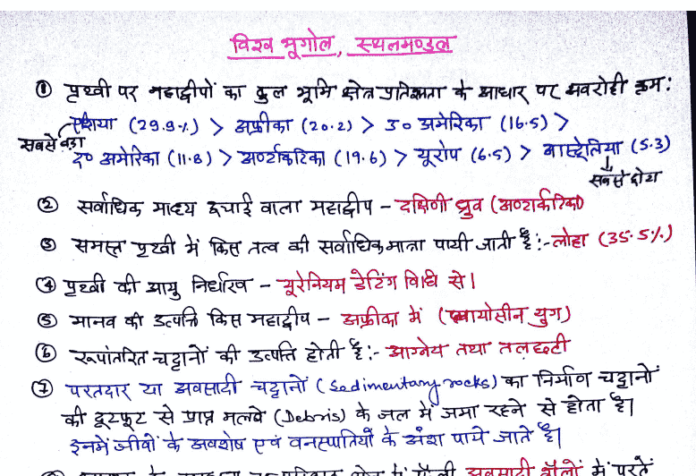 विश्व भूगोल, स्थलमण्डल
① पृथ्वी पर महाद्वीपों का कुल भूमि क्षेत्र प्रतिशतता के आधार पर अवरोही क्रम:
एशिया (29.9%) > अफ्रीका (20.2) > उ० अमेरिका (16.5) >
सबसे बड़ा
द० अमेरिका (11.8) > अण्टार्कटिका (19.6) > यूरोप (6.5) > आस्ट्रेलिया (5.3)
सबसे छोटा
② सर्वाधिक माध्य ऊचाई वाला महाद्वीप - दक्षिणी ध्रुव (अण्टार्कटिका)
③ समस्त पृथ्वी में किस तत्व की सर्वाधिक मात्रा पायी जाती है:- लोहा (35.5%)
④ पृथ्वी की आयु निर्धारण - यूरेनियम डेटिंग विधि से।
⑤ मानव की उत्पत्ति किस महाद्वीप - अफ्रीका में (प्लायोसीन युग)
⑥ रूपांतरित चट्टानों की उत्पत्ति होती है:- आग्नेय तथा तलछटी
⑦ परतदार या अवसादी चट्टानों (Sedimentary rocks) का निर्माण चट्टानों
की टूटफूट से प्राप्त मलवे (Debris) के जल में जमा रहने से होता है।
इनमें जीवों के अवशेष एवं वनस्पतियों के अंश पाये जाते हैं।